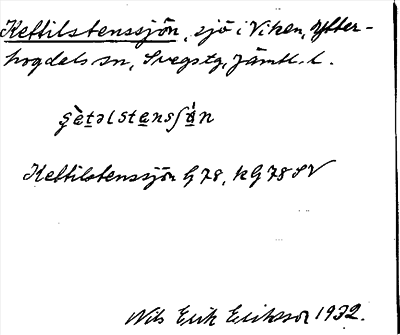 Kettilstenssjön, sjö i Viken, Ytter-
hogdals sn, Svegs tg, Jämtl. l.
s̨ètəlstensʃǻn
Kettilstenssjön G 78, k G 78 SV
Nils Erik Eriksson 1932.